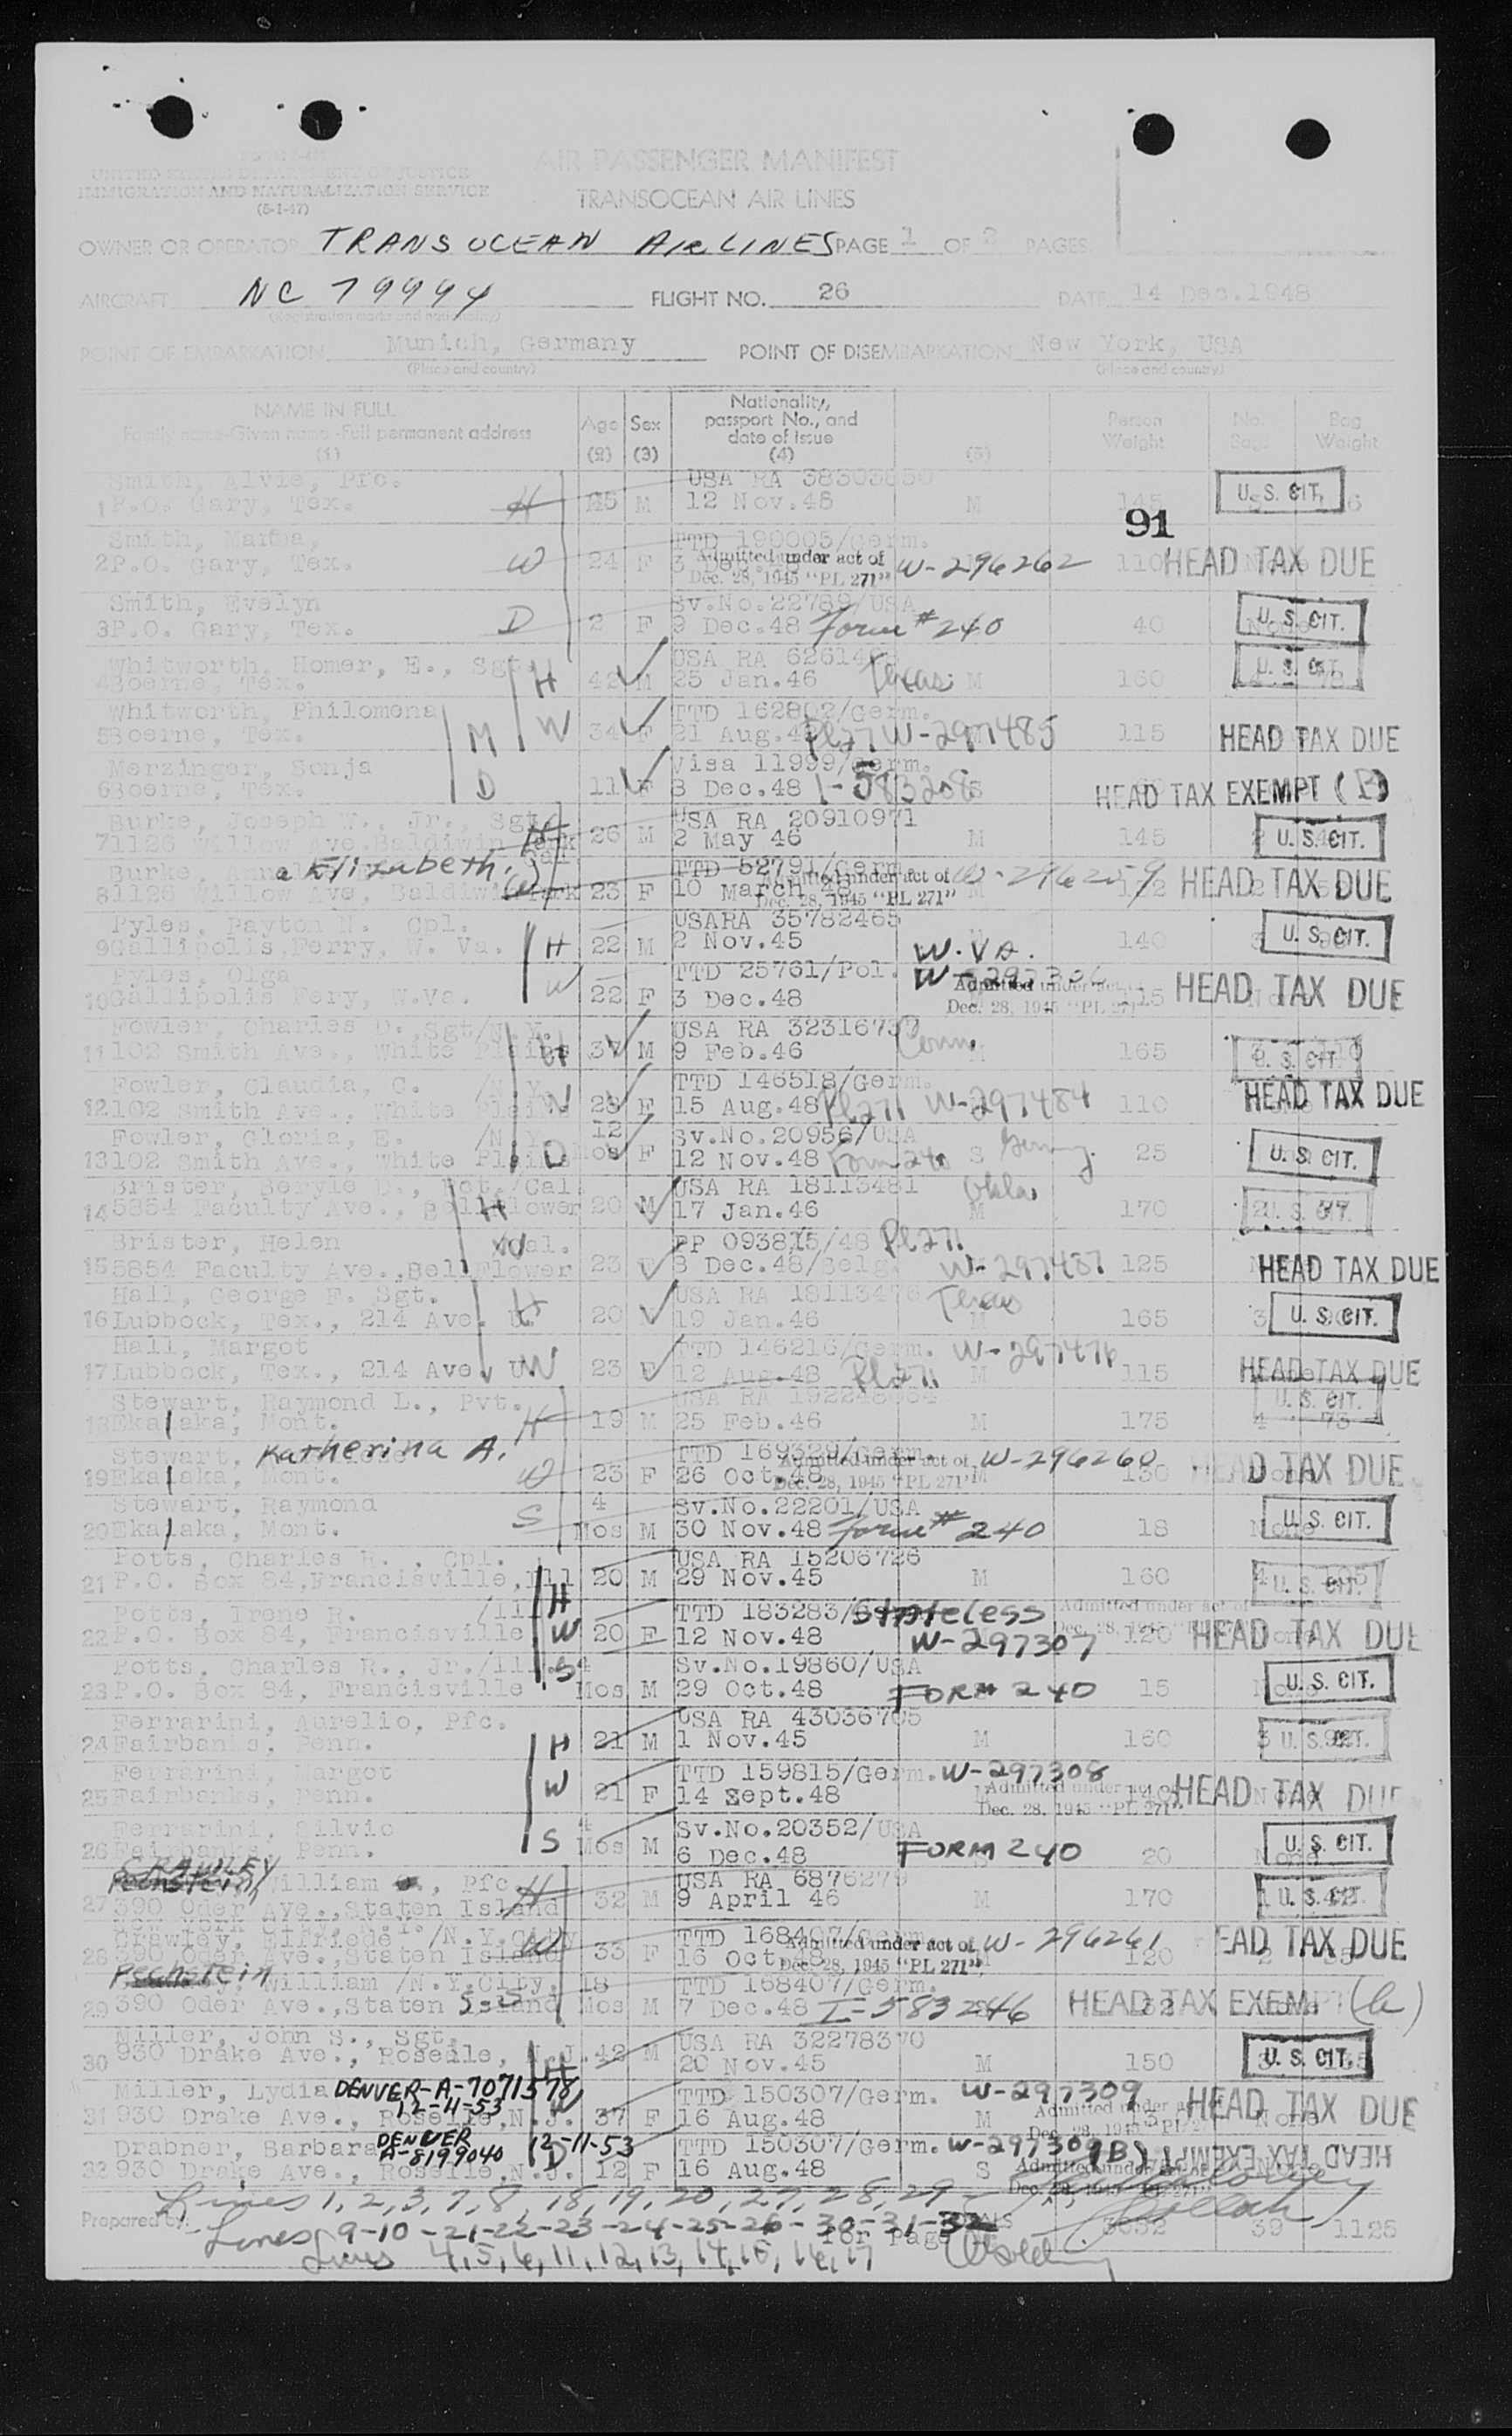 UNITED STATES DEPARTMENT OF JUSTICE
IMMIGRATION AND NATURALIZATION SERVICE
(5-1-47)
AIR PASSENGER MANIFEST
TRANSOCEAN AIR LINES
OWNER OR OPERATOR TRANSOCEAN AIRLINES PAGE 1 OF 2 PAGES
AIRCRAFT NC 79994 FLIGHT NO. 26 DATE 14 Dec.1948
(Registration marks and nationality)
POINT OF EMBARKATION Munich, Germany POINT OF DISEMBARKATION New York, USA
(Place and country) (Place and country)
NAME IN FULL Age Sex Nationality, passport No., and date of issue Person Weight No. Bag. Bag Weight
Family name-Given name-Full permanent address
(1) (2) (3) (4) (5)
Smith, Alvie, Pfc. USA RA
1 P.O. Gary, Tex. H M 12 Nov.48 M 145 U. S. CIT.
91
Smith, TTD 190005/Germ.
2 P.O. Gary, Tex. W 24 F 3 Admitted under act of Dec. 28, 1945 "PL 271" W-296262 110 HEAD TAX DUE
Smith, Evelyn Sv.No.22789/USA
3 P.O. Gary, Tex. D 2 F 9 Dec.48 Form # 240 40 U. S. CIT.
Whitworth, Homer, E., Sgt. H USA RA
4 Boerne, Tex. 42 M 25 Jan.46 Texas M 160 U. S. CIT.
Whitworth, Philomena W TTD 162802/Germ.
5 Boerne, Tex. M 34 F 21 Aug. Pl271 W-297485 115 HEAD TAX DUE
Merzinger, Sonja Visa 11999/Germ.
6 Boerne, Tex. D 11 F 8 Dec.48 I-583208 S HEAD TAX EXEMPT (B)
Burke, Joseph W., Jr., Sgt. H USA RA 20910971
7 1126 Willow Ave. Baldwin Park 26 M 2 May 46 M 145 U. S. CIT.
Burke, Elizabeth. TTD 52791/Germ.
8 1126 Willow Ave, Baldwin Park (W) 23 F 10 March 48 Admitted under act of Dec. 28, 1945 "PL 271" W-296259 HEAD TAX DUE
Pyles, Payton N. Cpl. USARA 35782465
9 Gallipolis Ferry, W. Va. H 22 M 2 Nov.45 W. VA. 140 U. S. CIT.
Pyles, Olga TTD 25761/Pol. W-297306
10 Gallipolis Fery, W.Va. W 22 F 3 Dec.48 Admitted under act Dec. 28, 1945 "PL 271" 115 HEAD TAX DUE
Fowler, Charles D. Sgt/N.Y. USA RA 32316737
11 102 Smith Ave., White Plains H 37 M 9 Feb.46 Conn. M 165 U. S. CIT.
Fowler, Claudia, C. /N.Y. TTD 146518/Germ.
12 102 Smith Ave., White Plains W 28 F 15 Aug.48 Pl271 W-297484 110 HEAD TAX DUE
Fowler, Gloria, E. /N.Y. 12 Sv.No.20956/USA
13 102 Smith Ave., White Plains D Mos F 12 Nov.48 Form 240 S Germany 25 U. S. CIT.
Brister, Beryle D., Pvt./Cal. USA RA 18113481 Okla.
14 5854 Faculty Ave., Bellflower H 20 M 17 Jan.46 M 170 U. S. CIT.
Brister, Helen W Cal. PP 093815/48 Pl271
15 5854 Faculty Ave., BellFlower 23 F 8 Dec.48/Belg. W-297487 125 HEAD TAX DUE
Hall, George F. Sgt. USA RA Texas
16 Lubbock, Tex., 214 Ave. U. H 20 M 19 Jan.46 165 U. S. CIT.
Hall, Margot TTD 146216/Germ. W-297476
17 Lubbock, Tex., 214 Ave. U. W 23 F 12 Aug.48 Pl271 M 115 HEAD TAX DUE
Stewart, Raymond L., Pvt. USA RA
18 Ekalaka, Mont. H 19 M 25 Feb.46 M 175 U. S. CIT. 4 75
Stewart, Katherina A. TTD 169329/Germ.
19 Ekalaka, Mont. W 23 F 26 Oct.48 Admitted under act of Dec. 28, 1945 "PL 271" W-296260 130 HEAD TAX DUE
Stewart, Raymond 4 Sv.No.22201/USA
20 Ekalaka, Mont. S Mos M 30 Nov.48 Form # 240 18 None U. S. CIT.
Potts, Charles R., Cpl. USA RA 15206726
21 P.O. Box 84,Francisville,Ill H 20 M 29 Nov.45 M 160 U. S. CIT.
Potts, Irene R. /Ill TTD 183283/Stateless Admitted under act of
22 P.O. Box 84, Francisville W 20 F 12 Nov.48 W-297307 Dec. 28, 1945 "PL 271" 120 HEAD TAX DUE
Potts, Charles R., Jr./Ill. 4 Sv.No.19860/USA
23 P.O. Box 84, Francisville S Mos M 29 Oct.48 FORM 240 15 U. S. CIT.
Ferrarini, Aurelio, Pfc. USA RA 43036705
24 Fairbanks, Penn. H 21 M 1 Nov.45 M 160 U. S. CIT.
Ferrarini, Margot TTD 159815/Germ. W-297308
25 Fairbanks, Penn. W 21 F 14 Sept.48 Admitted under act Dec. 28, 1945 "PL 271" HEAD TAX DUE
Ferrarini, Silvio 4 Sv.No.20352/USA
26 Fairbanks, Penn. S Mos M 6 Dec.48 FORM 240 20 None U. S. CIT.
CRAWLEY Pechstein William, Pfc. USA RA
27 390 Oder Ave.,Staten Island H 32 M 9 April 46 M 170 U. S. CIT.
Crawley, Elfriede /N.Y.City TTD 168407/Germ.
28 390 Oder Ave.,Staten Island W 33 F 16 Oct. Admitted under act of Dec. 28, 1945 "PL 271" W-296261 120 HEAD TAX DUE
Pechstein William /N.Y.City. 18 TTD 168407/Germ.
29 390 Oder Ave.,Staten Island S-S Mos M 7 Dec.48 I-583246 32 HEAD TAX EXEMPT
Miller, John S., Sgt. USA RA 32278370
30 930 Drake Ave., Roselle, N.J. H 42 M 20 Nov.45 M 150 U. S. CIT.
Miller, Lydia DENVER-A-7071578 12-11-53 TTD 150307/Germ. W-297309
31 930 Drake Ave., Roselle,N.J. W 37 F 16 Aug.48 M Admitted under act HEAD TAX DUE
Drabner, Barbara DENVER A-8199040 12-11-53 TTD 150307/Germ. W-297309(B) HEAD TAX EXEMPT
32 930 Drake Ave., Roselle,N.J. D 12 F 16 Aug.48 S Admitted under
Lines 1, 2, 3, 7, 8, 18, 19, 20, 27, 28, 29 -
Prepared by Lines 9-10-21-22-23-24-25-26-30-31-32 For Page 3632 39 1125
Lines 4, 5, 6, 11, 12, 13, 14, 15, 16, 17